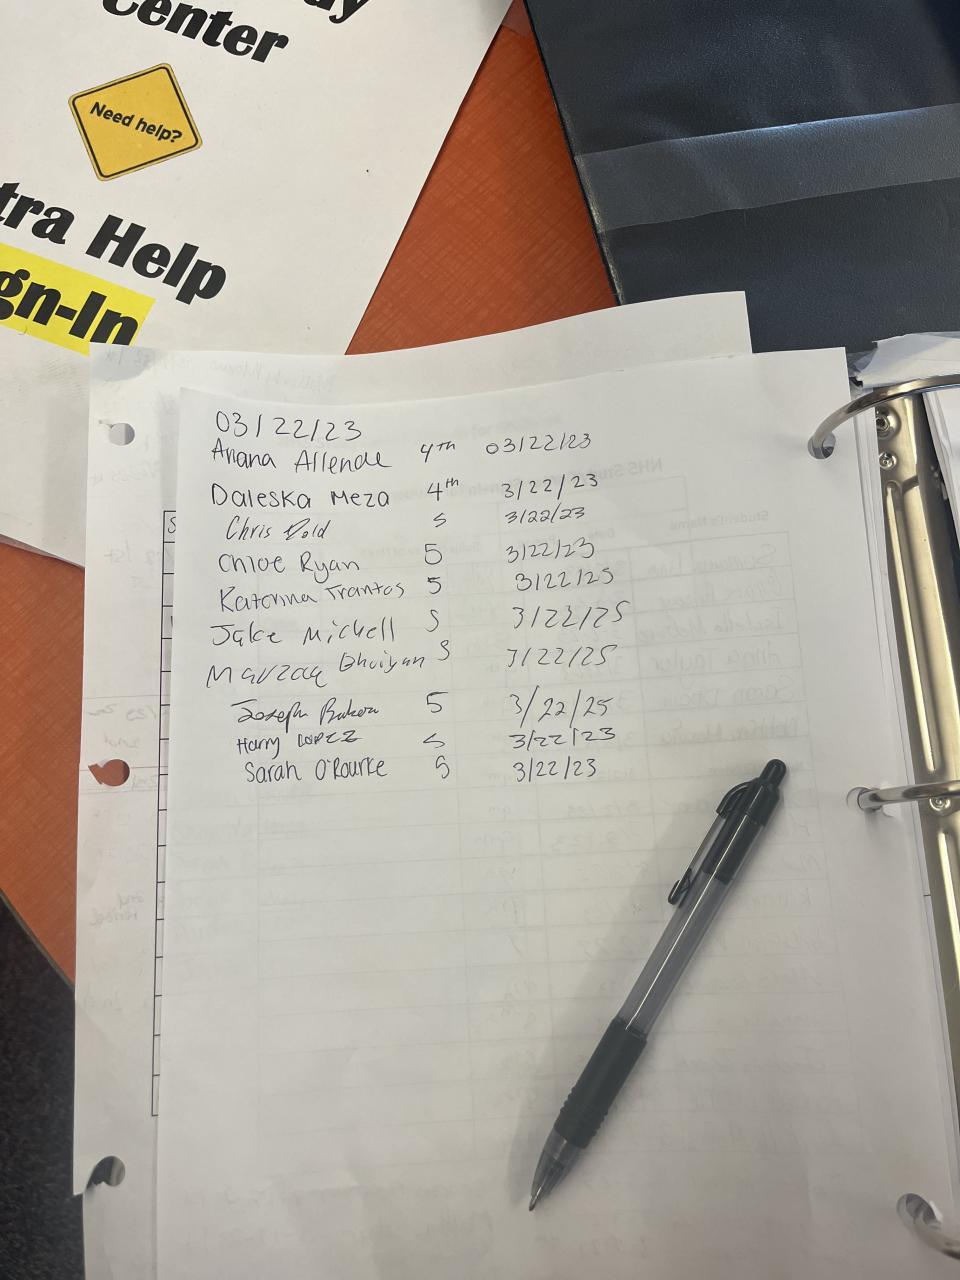 Center
Need help?
tra Help
gn-In
03/22/23
Ariana Allende 4th 03/22/23
Daleska Meza 4th 3/22/23
Chris 5 3/22/23
Chloe Ryan 5 3/22/23
Katerina Frantos 5 3/22/25
Jake Michell 5 3/22/25
Marzaq Bhuiyan 5 3/22/25
Joseph 5 3/22/25
Harry LOPEZ 5 3/22/23
Sarah O'Rourke 5 3/22/23